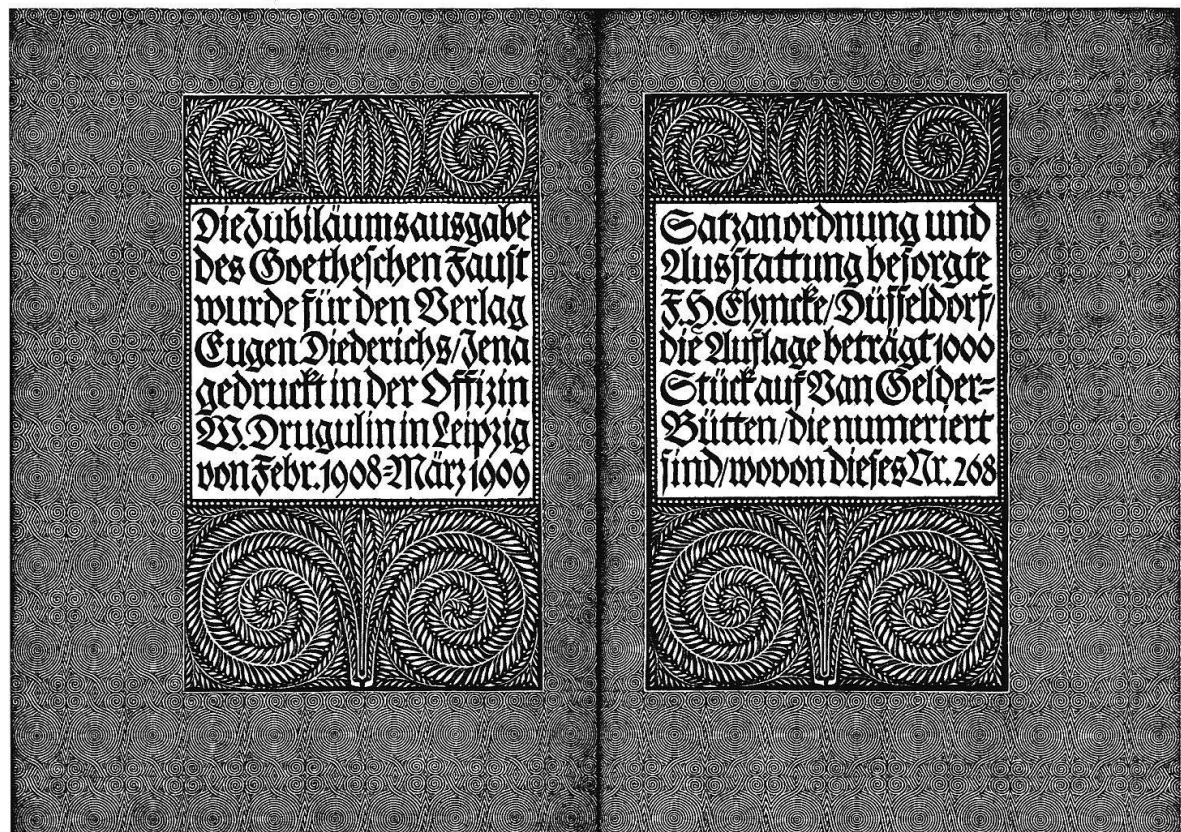 Die Jubiläumsausgabe
des Goetheschen Faust
wurde für den Verlag
Eugen Diederichs/Jena
gedruckt in der Offizin
W. Drugulin in Leipzig
von Febr. 1908-März 1909
Satzanordnung und
Ausstattung besorgte
F. H. Ehmcke/Düsseldorf/
die Auflage beträgt 1000
Stück auf Van Gelder-
Bütten/die numeriert
sind/wovon dieses Nr. 268